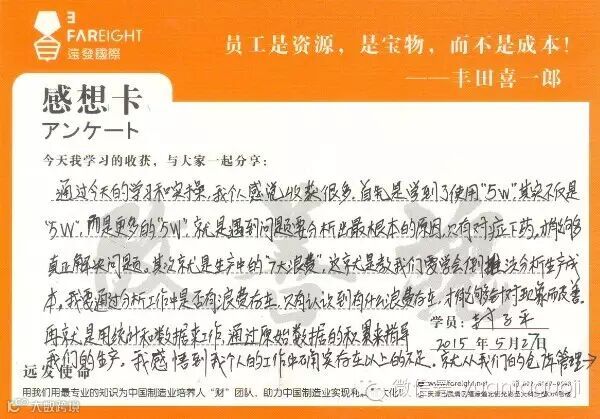 FAREIGHT
遠發國際
员工是资源，是宝物，而不是成本！
——丰田喜一郎
感想卡
アンケート
今天我学习的收获，与大家一起分享：
通过今天的学习和实操，我个人感觉收获很多，首先是学到了使用"5W"，其实不仅是
"5W"，而是更多的"5W"，就是遇到问题要分析出最根本的原因，只有对症下药，才能够
真正解决问题。其次就是生产中的"7大浪费"，这就是教我们要学会倒推法分析生产成
本，我要通过分析工作中是否有浪费存在，只有认识到有什么浪费存在，才能够针对现象而改善。
再就是用统计和数据来工作，通过原始数据的积累来指导
学员：
2015年5月27日
我们的生产，我感悟到我个人的工作中确实存在以上的不足。就从我们的仓库管理→
改善族
远发使命
用我们用最专业的知识为中国制造业培养人"财"团队、助力中国制造业实现利
大化
大数跨境